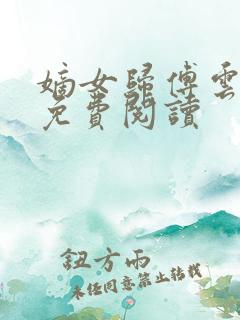 嫡女歸傅雲
免費閱讀
鈕方雨
未經同意禁止轉載